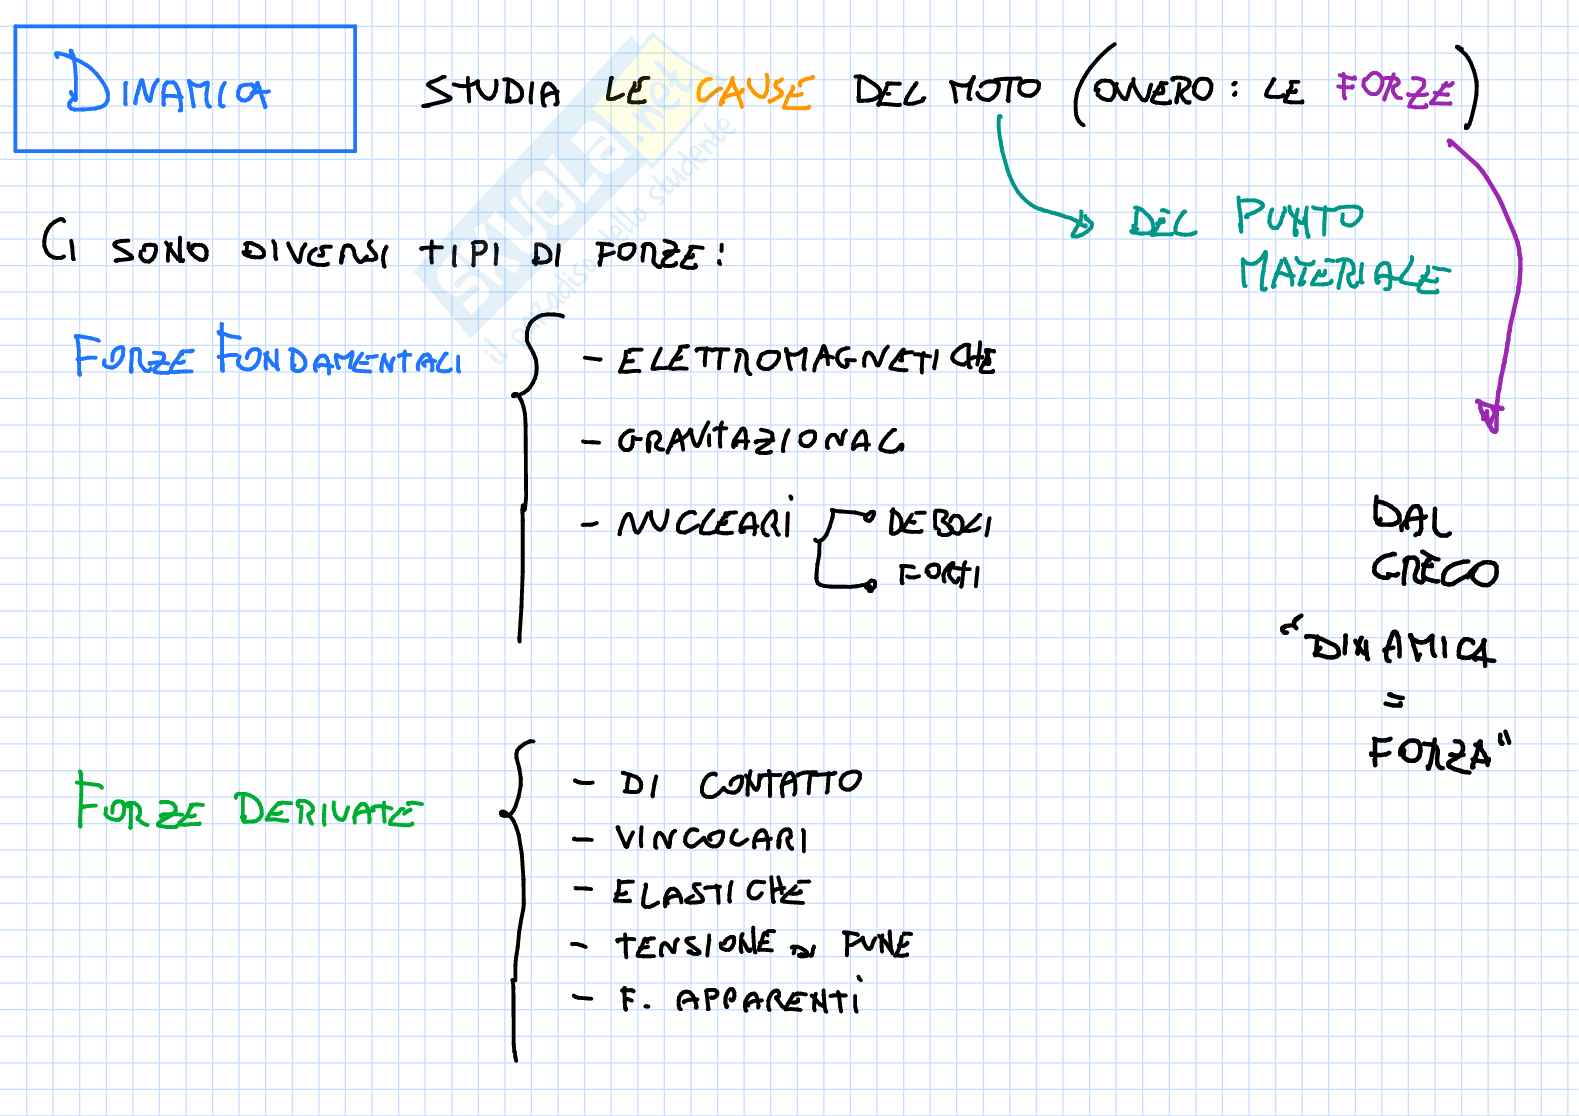 DINAMICA
STUDIA LE CAUSE DEL MOTO (OVVERO: LE FORZE)
DEL PUNTO
MATERIALE
CI SONO DIVERSI TIPI DI FORZE:
FORZE FONDAMENTALI
- ELETTROMAGNETICHE
- GRAVITAZIONALI
- NUCLEARI
DEBOLI
FORTI
DAL
GRECO
"DINAMICA
=
FORZA"
FORZE DERIVATE
- DI CONTATTO
- VINCOLARI
- ELASTICHE
- TENSIONE DI FUNE
- F. APPARENTI
SKUOLA.net
il paradiso dello studente